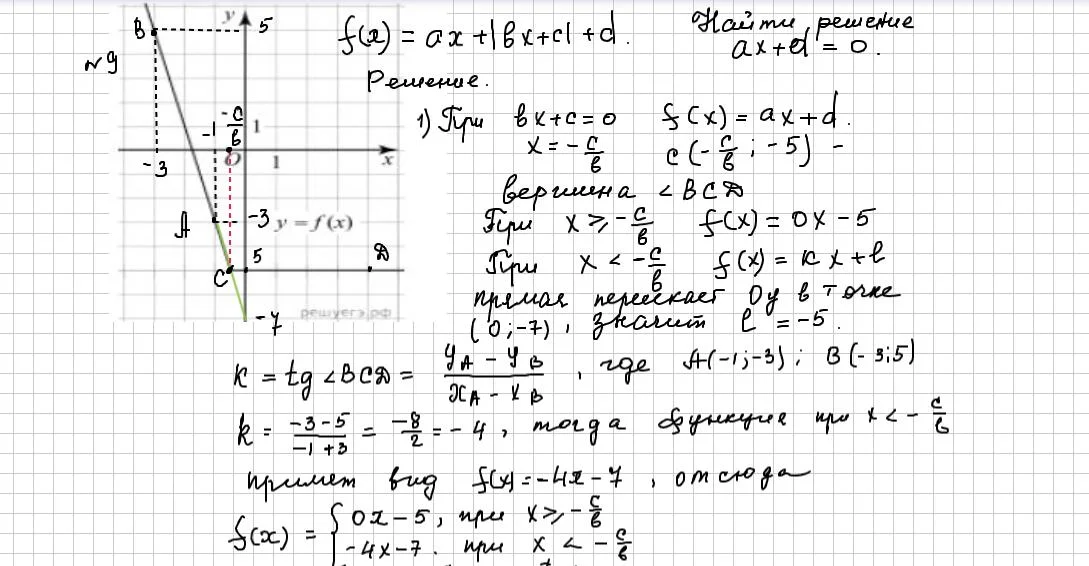 №9
B
y
5
-1
-c/b
1
O
1
x
-3
A
-3
y = f(x)
5
C
D
решуегэ.рф
-7
f(x) = ax+|bx+c|+d.
Найти решение
ax+d = 0.
Решение.
1) При bx+c=0 f(x)=ax+d.
x = -c/b C(-c/b; -5) -
вершина ∠BCD
При x ⩾ -c/b f(x) = 0x - 5
При x < -c/b f(x) = kx + l
прямая пересекает Oy в точке
(0;-7), значит l = -5.
k = tg ∠BCD = (yA - yB)/(xA - xB), где A(-1;-3); B(-3;5)
k = (-3-5)/(-1+3) = -8/2 = -4, тогда функция при x < -c/b
примет вид f(x) = -4x-7, отсюда
f(x) = { 0x-5, при x ⩾ -c/b
-4x-7. при x < -c/b